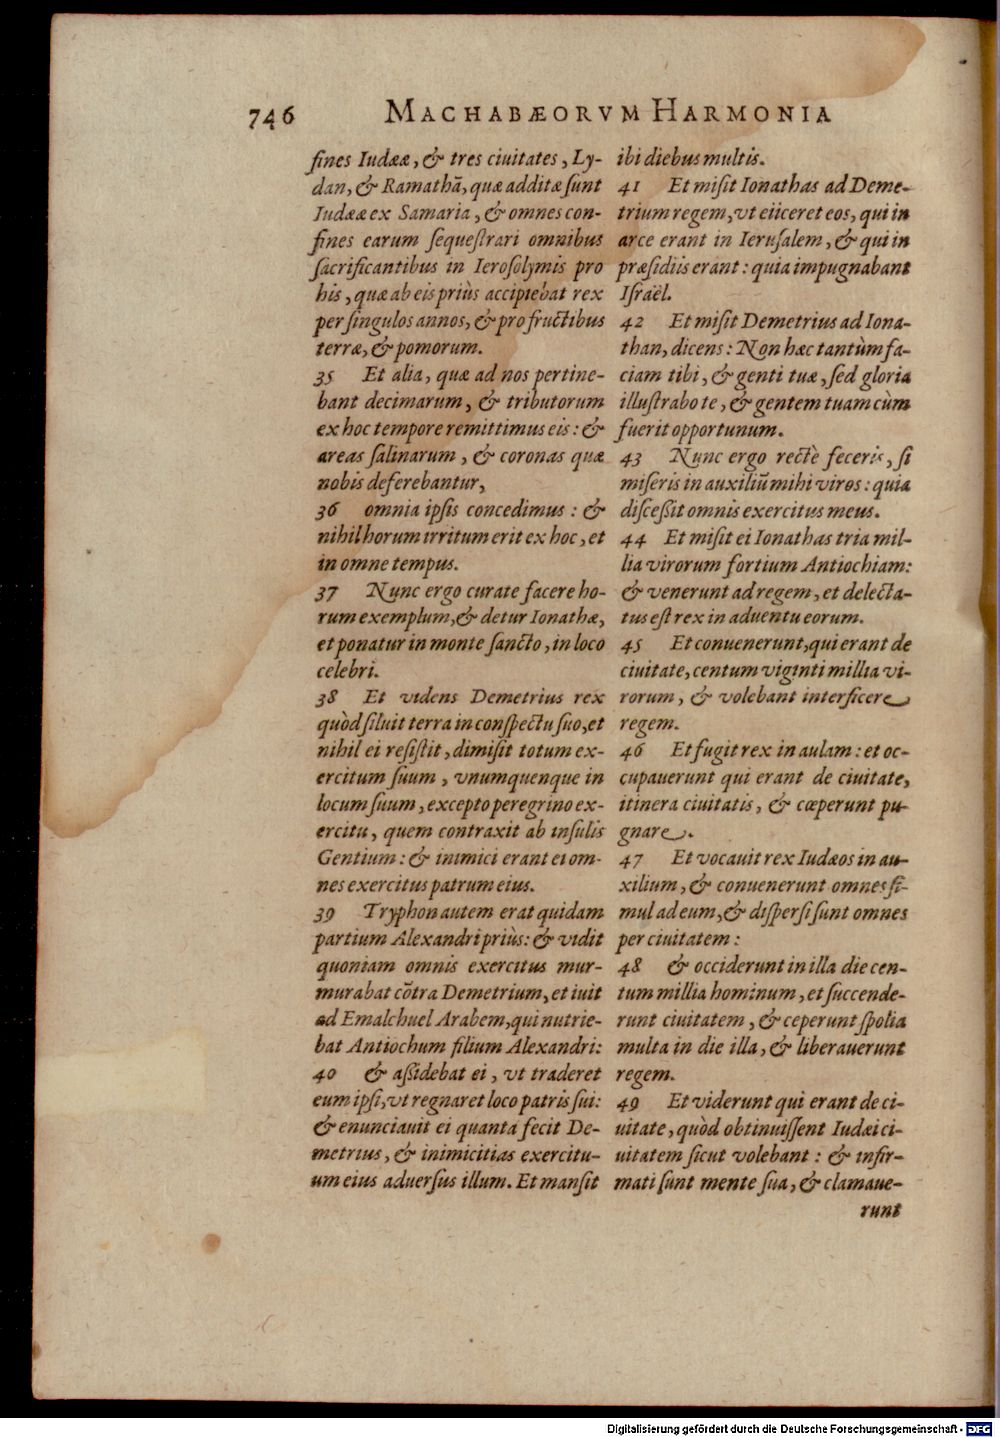 746 MACHABÆORVM HARMONIA
fines Iudææ, & tres ciuitates, Ly-
dan, & Ramathã, quæ additæ sunt
Iudææ ex Samaria, & omnes con-
fines earum sequestrari omnibus
sacrificantibus in Ierosolymis pro
his, quæ ab eis priùs accipiebat rex
per singulos annos, & pro fructibus
terræ, & pomorum.
35 Et alia, quæ ad nos pertine-
bant decimarum, & tributorum
ex hoc tempore remittimus eis: &
areas salinarum, & coronas quæ
nobis deferebantur,
36 omnia ipsis concedimus: &
nihil horum irritum erit ex hoc, et
in omne tempus.
37 Nunc ergo curate facere ho-
rum exemplum, & detur Ionathæ,
et ponatur in monte sancto, in loco
celebri.
38 Et videns Demetrius rex
quòd siluit terra in conspectu suo, et
nihil ei resistit, dimisit totum ex-
ercitum suum, vnumquenque in
locum suum, excepto peregrino ex-
ercitu, quem contraxit ab insulis
Gentium: & inimici erant ei om-
nes exercitus patrum eius.
39 Tryphon autem erat quidam
partium Alexandri priùs: & vidit
quoniam omnis exercitus mur-
murabat cõtra Demetrium, et iuit
ad Emalchuel Arabem, qui nutrie-
bat Antiochum filium Alexandri:
40 & assidebat ei, vt traderet
eum ipsi, vt regnaret loco patris sui:
& enunciauit ei quanta fecit De-
metrius, & inimicitias exercitu-
um eius aduersus illum. Et mansit
ibi diebus multis.
41 Et misit Ionathas ad Deme-
trium regem, vt eiiceret eos, qui in
arce erant in Ierusalem, & qui in
præsidiis erant: quia impugnabant
Israël.
42 Et misit Demetrius ad Iona-
than, dicens: Non hæc tantùm fa-
ciam tibi, & genti tuæ, sed gloria
illustrabo te, & gentem tuam cùm
fuerit opportunum.
43 Nunc ergo rectè feceris, si
miseris in auxiliũ mihi viros: quia
discessit omnis exercitus meus.
44 Et misit ei Ionathas tria mil-
lia virorum fortium Antiochiam:
& venerunt ad regem, et delecta-
tus est rex in aduentu eorum.
45 Et conuenerunt, qui erant de
ciuitate, centum viginti millia vi-
rorum, & volebant interficere
regem.
46 Et fugit rex in aulam: et oc-
cupauerunt qui erant de ciuitate,
itinera ciuitatis, & cœperunt pu-
gnare.
47 Et vocauit rex Iudæos in au-
xilium, & conuenerunt omnes si-
mul ad eum, & dispersi sunt omnes
per ciuitatem:
48 & occiderunt in illa die cen-
tum millia hominum, et succende-
runt ciuitatem, & ceperunt spolia
multa in die illa, & liberauerunt
regem.
49 Et viderunt qui erant de ci-
uitate, quòd obtinuissent Iudæi ci-
uitatem sicut volebant: & infir-
mati sunt mente sua, & clamaue-
runt
Digitalisierung gefördert durch die Deutsche Forschungsgemeinschaft - DFG